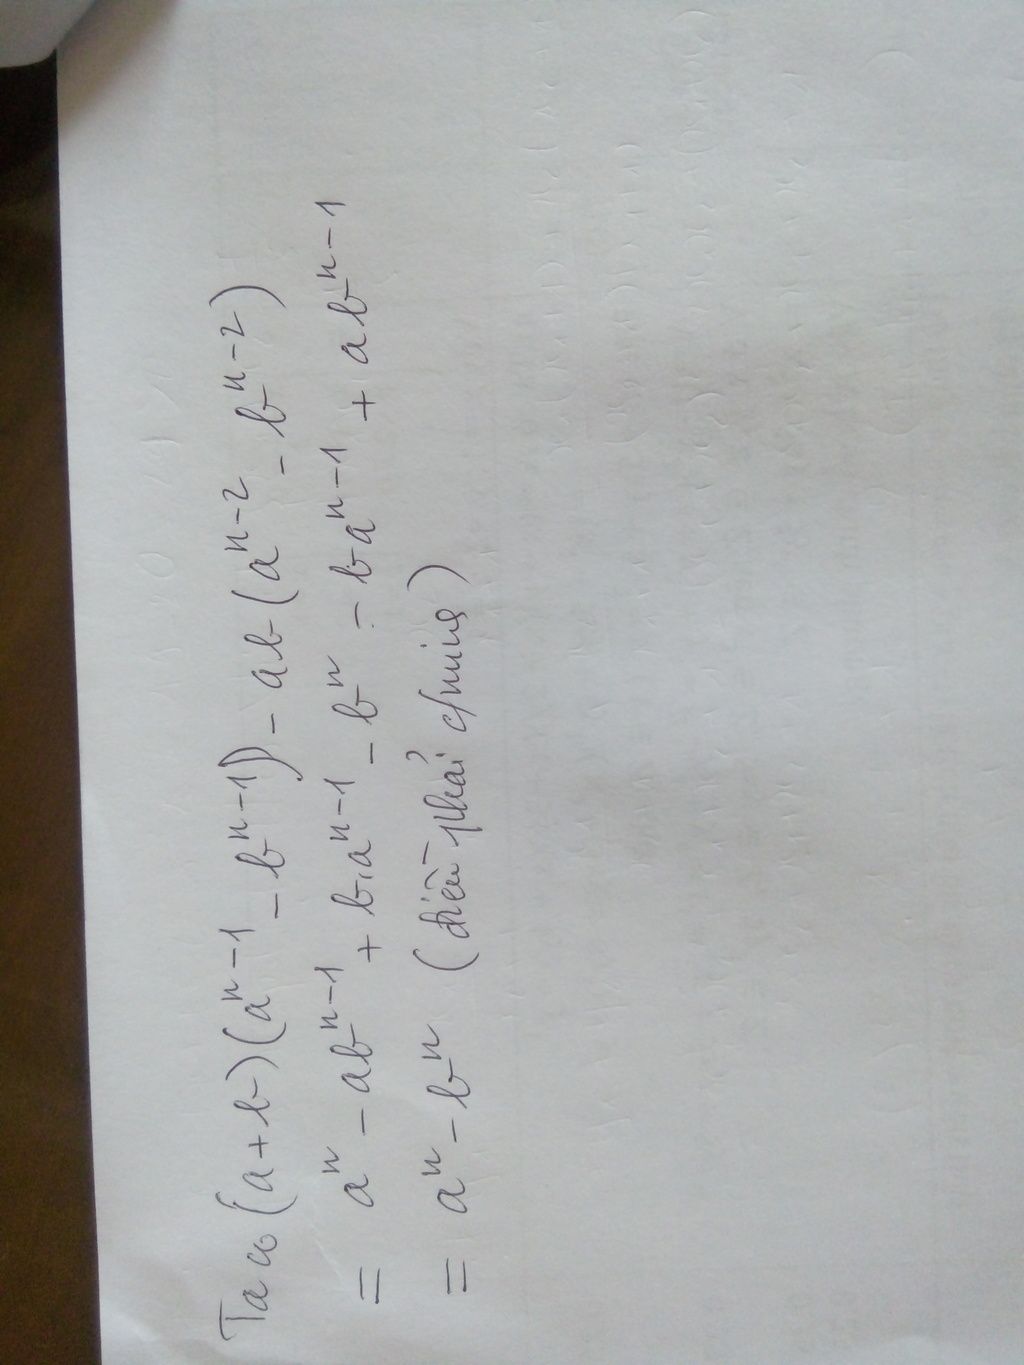 Ta có (a+b)(a^{n-1} - b^{n-1}) - ab(a^{n-2} - b^{n-2})
= a^n - ab^{n-1} + b.a^{n-1} - b^n - ba^{n-1} + ab^{n-1}
= a^n - b^n (điều phải chứng)